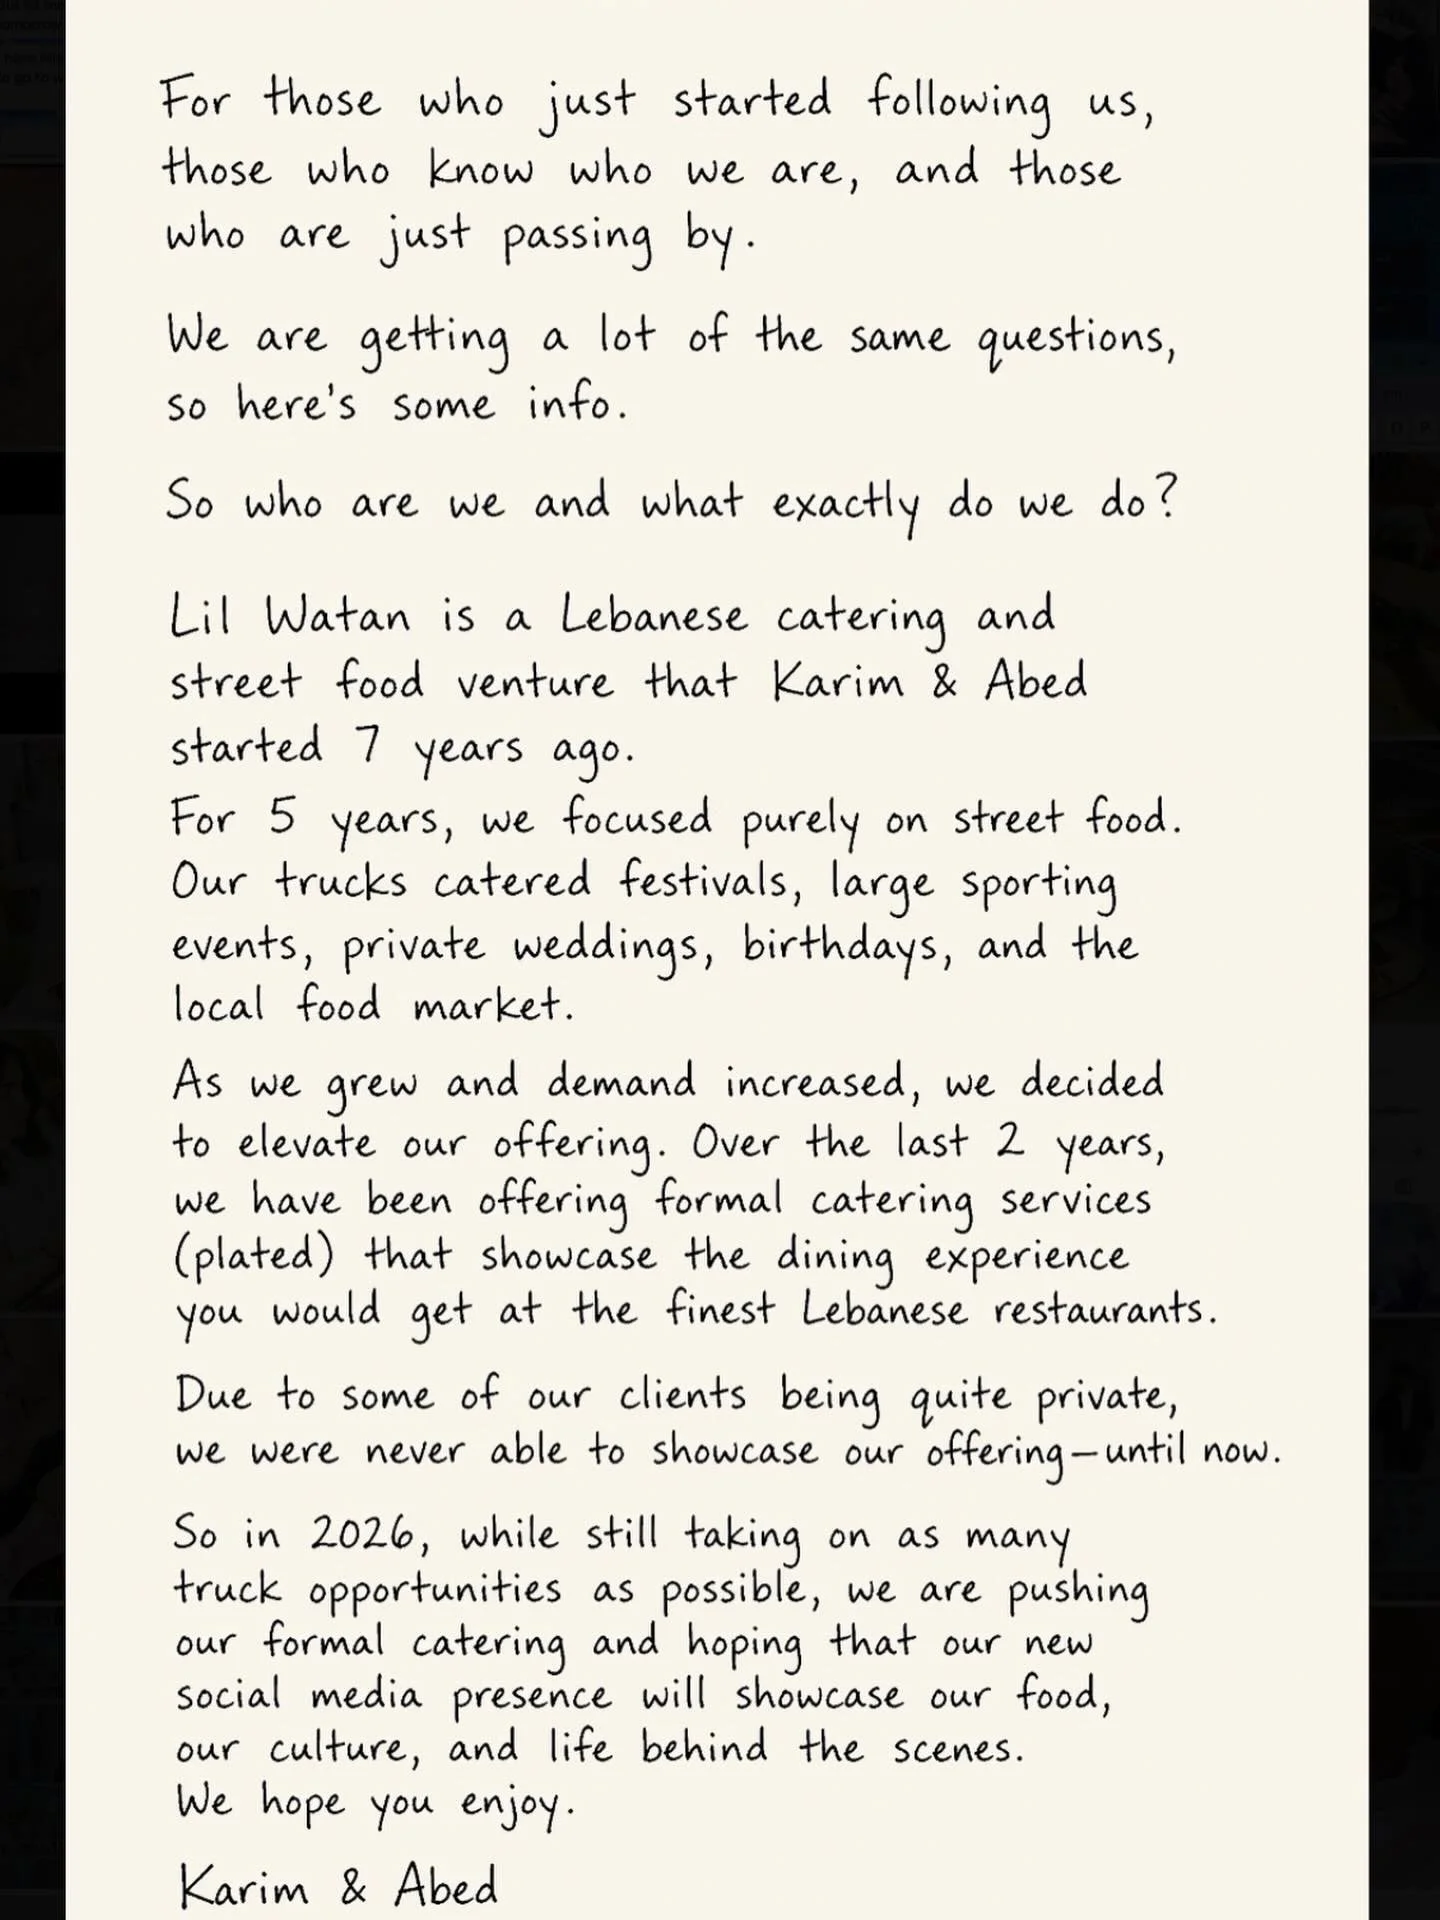 For those who just started following us,
those who know who we are, and those
who are just passing by.
We are getting a lot of the same questions,
so here's some info.
So who are we and what exactly do we do?
Lil Watan is a Lebanese catering and
street food venture that Karim & Abed
started 7 years ago.
For 5 years, we focused purely on street food.
Our trucks catered festivals, large sporting
events, private weddings, birthdays, and the
local food market.
As we grew and demand increased, we decided
to elevate our offering. Over the last 2 years,
we have been offering formal catering services
(plated) that showcase the dining experience
you would get at the finest Lebanese restaurants.
Due to some of our clients being quite private,
we were never able to showcase our offering—until now.
So in 2026, while still taking on as many
truck opportunities as possible, we are pushing
our formal catering and hoping that our new
social media presence will showcase our food,
our culture, and life behind the scenes.
We hope you enjoy.
Karim & Abed